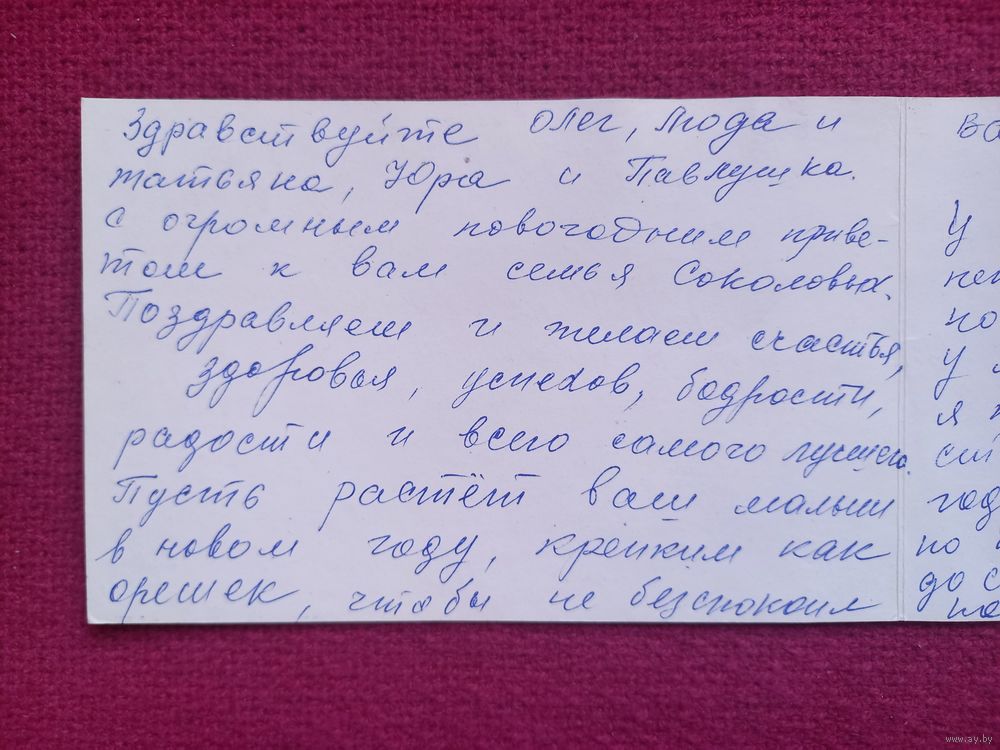 Здравствуйте Олег, Люда и
Татьяна, Юра и Павлушка.
С огромным новогодним приве-
том к вам семья Соколовых.
Поздравляем и желаем счастья,
здоровья, успехов, бодрости,
радости и всего самого лучшего.
Пусть растёт ваш малыш
в новом году, крепким как
орешек, чтобы не безспокоил
во
У
нет
но
у
я
сил
год
но
до с
на
www.ay.by